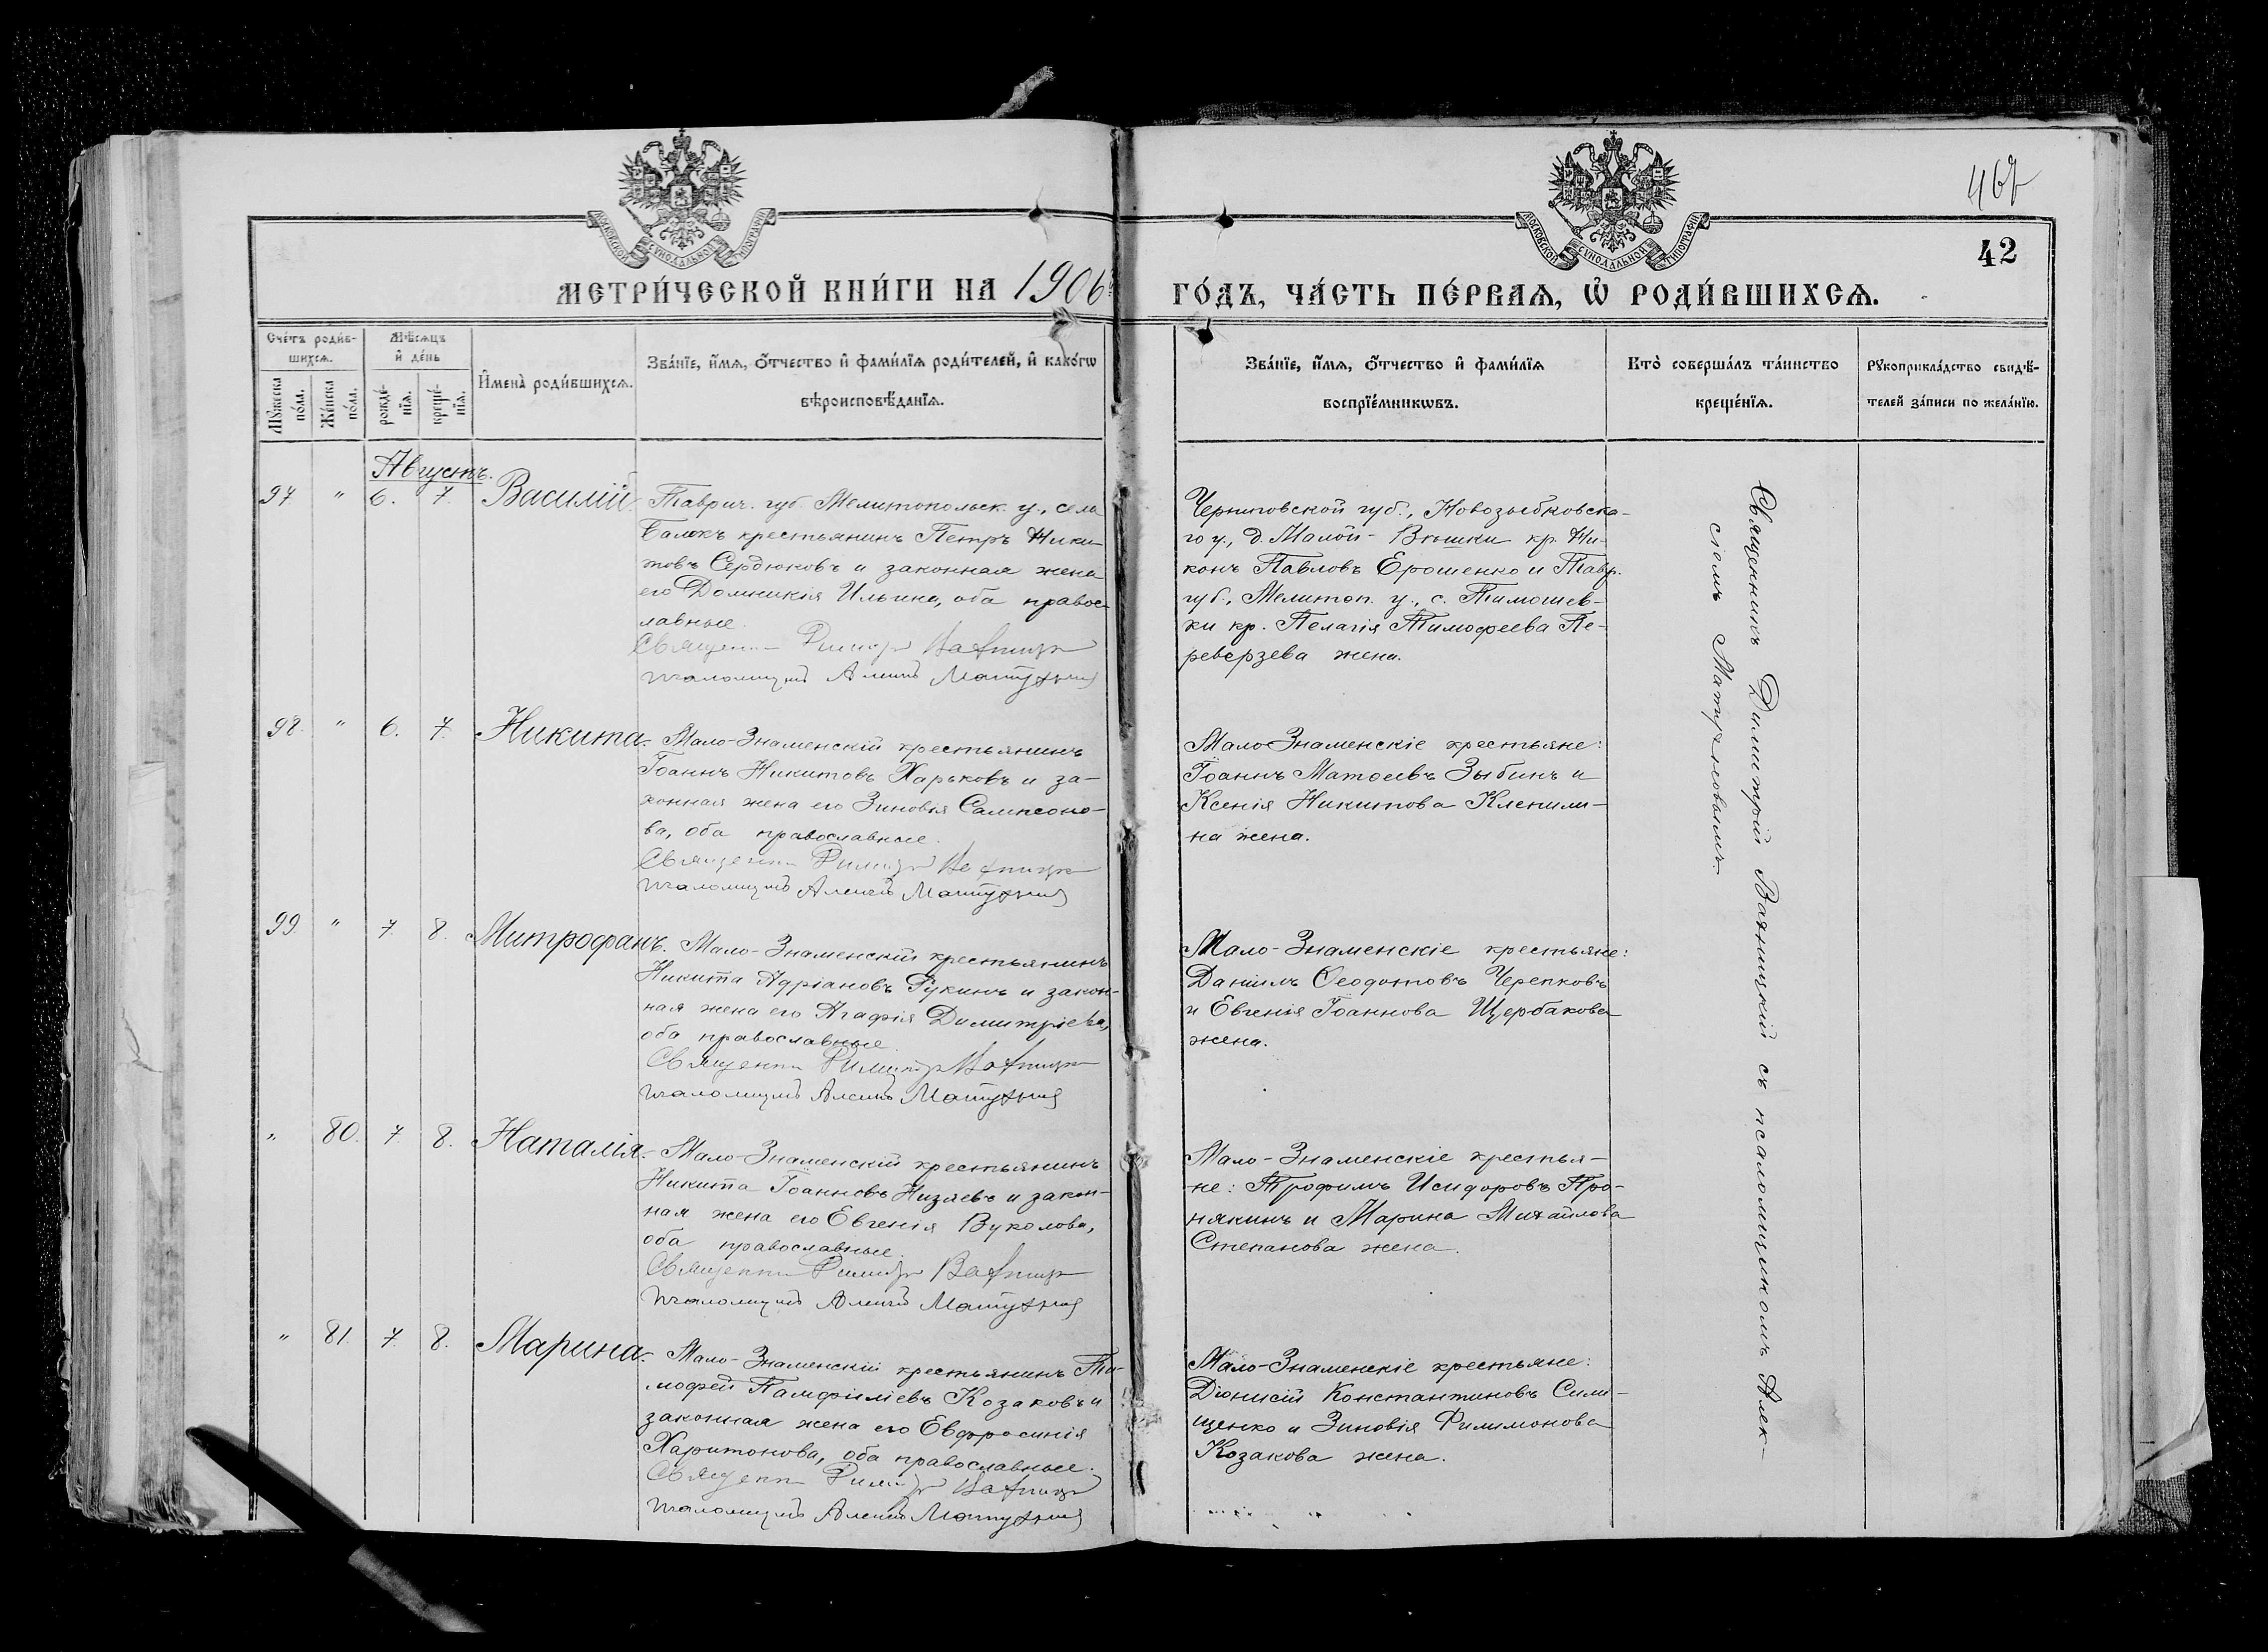 46
42
МОСКОВСКОЙ СѴНОДАЛЬНОЙ ТИПОГРАФІИ
МОСКОВСКОЙ СѴНОДАЛЬНОЙ ТИПОГРАФІИ
МЕТРИ́ЧЕСКОЙ КНИ́ГИ НА 1906
ГО́ДЪ, ЧА́СТЬ ПЕ́РВАѦ, Ѡ҆ РОДИ́ВШИХСѦ.
Сче́тъ роди́в-
шихсѧ.
Мꙋ́жеска по́ла.
Же́нска по́ла.
Мѣ́сѧцъ
и҆ де́нь
рожде́-
нїѧ.
креще́-
нїѧ.
И҆мена̀ роди́вшихсѧ.
Зва́нїе, и҆́мѧ, ѻ҆́тчество и҆ фами́лїѧ роди́телей, и҆ како́гѡ
вѣроисповѣ́данїѧ.
Зва́нїе, и҆́мѧ, ѻ҆́тчество и҆ фами́лїѧ
воспрїе́мникѡвъ.
Кто̀ соверша́лъ та́инство
креще́нїѧ.
Рꙋкоприкла́дство свидѣ́-
телей за́писи по жела́нїю.
Августъ.
97 " 6. 7. Василій.
Таврич. губ. Мелитопольск. у., села
Балокъ крестьянинъ Петръ Ники-
товъ Сердюковъ и законная жена
его Домникія Ильина, оба правос-
лавные.
Священникъ Димитрій
псаломщикъ Алексій
Черниговской губ., Новозыбковска-
го у., д. Малой - Вышки кр. Ни-
конъ Павловъ Ерошенко и Тавр.
губ., Мелитоп. у., с. Тимошев-
ки кр. Пелагія Тимофеева Пе-
реверзева жена.
98. " 6. 7. Никита.
Мало-Знаменскій крестьянинъ
Іоаннъ Никитовъ Харьковъ и за-
конная жена его Зиновья Сампсоно-
ва, оба православные.
Священникъ Димитрій
псаломщикъ Алексій
Мало-Знаменскіе крестьяне:
Іоаннъ Матѳеевъ Зыбинъ и
Ксенія Никитова Клепили-
на жена.
99. " 7. 8. Митрофанъ.
Мало-Знаменскій крестьянинъ
Никита Адріановъ Гукинъ и закон-
ная жена его Агафія Димитріева,
оба православные.
Священникъ Димитрій
псаломщикъ Алексій
Мало-Знаменскіе крестьяне:
Даніилъ Ѳеодотовъ Черепковъ
и Евгенія Іоаннова Щербакова
жена.
" 80. 7. 8. Наталія.
Мало-Знаменскій крестьянинъ
Никита Іоанновъ Низяевъ и закон-
ная жена его Евгенія Вуколова,
оба православные.
Священникъ Димитрій
псаломщикъ Алексій
Мало-Знаменскіе крестья-
не: Трофимъ Исидоровъ Про-
някинъ и Марина Михайлова
Степанова жена.
" 81. 7. 8. Марина.
Мало-Знаменскій крестьянинъ Ти-
мофей Памфиліевъ Козаковъ и
законная жена его Евфросинія
Харитонова, оба православные.
Священникъ Димитрій
псаломщикъ Алексій
Мало-Знаменскіе крестьяне:
Діонисій Константиновъ Сими-
щенко и Зиновія Филимонова
Козакова жена.
Священникъ Димитрій съ псаломщикомъ Алек-
сіемъ